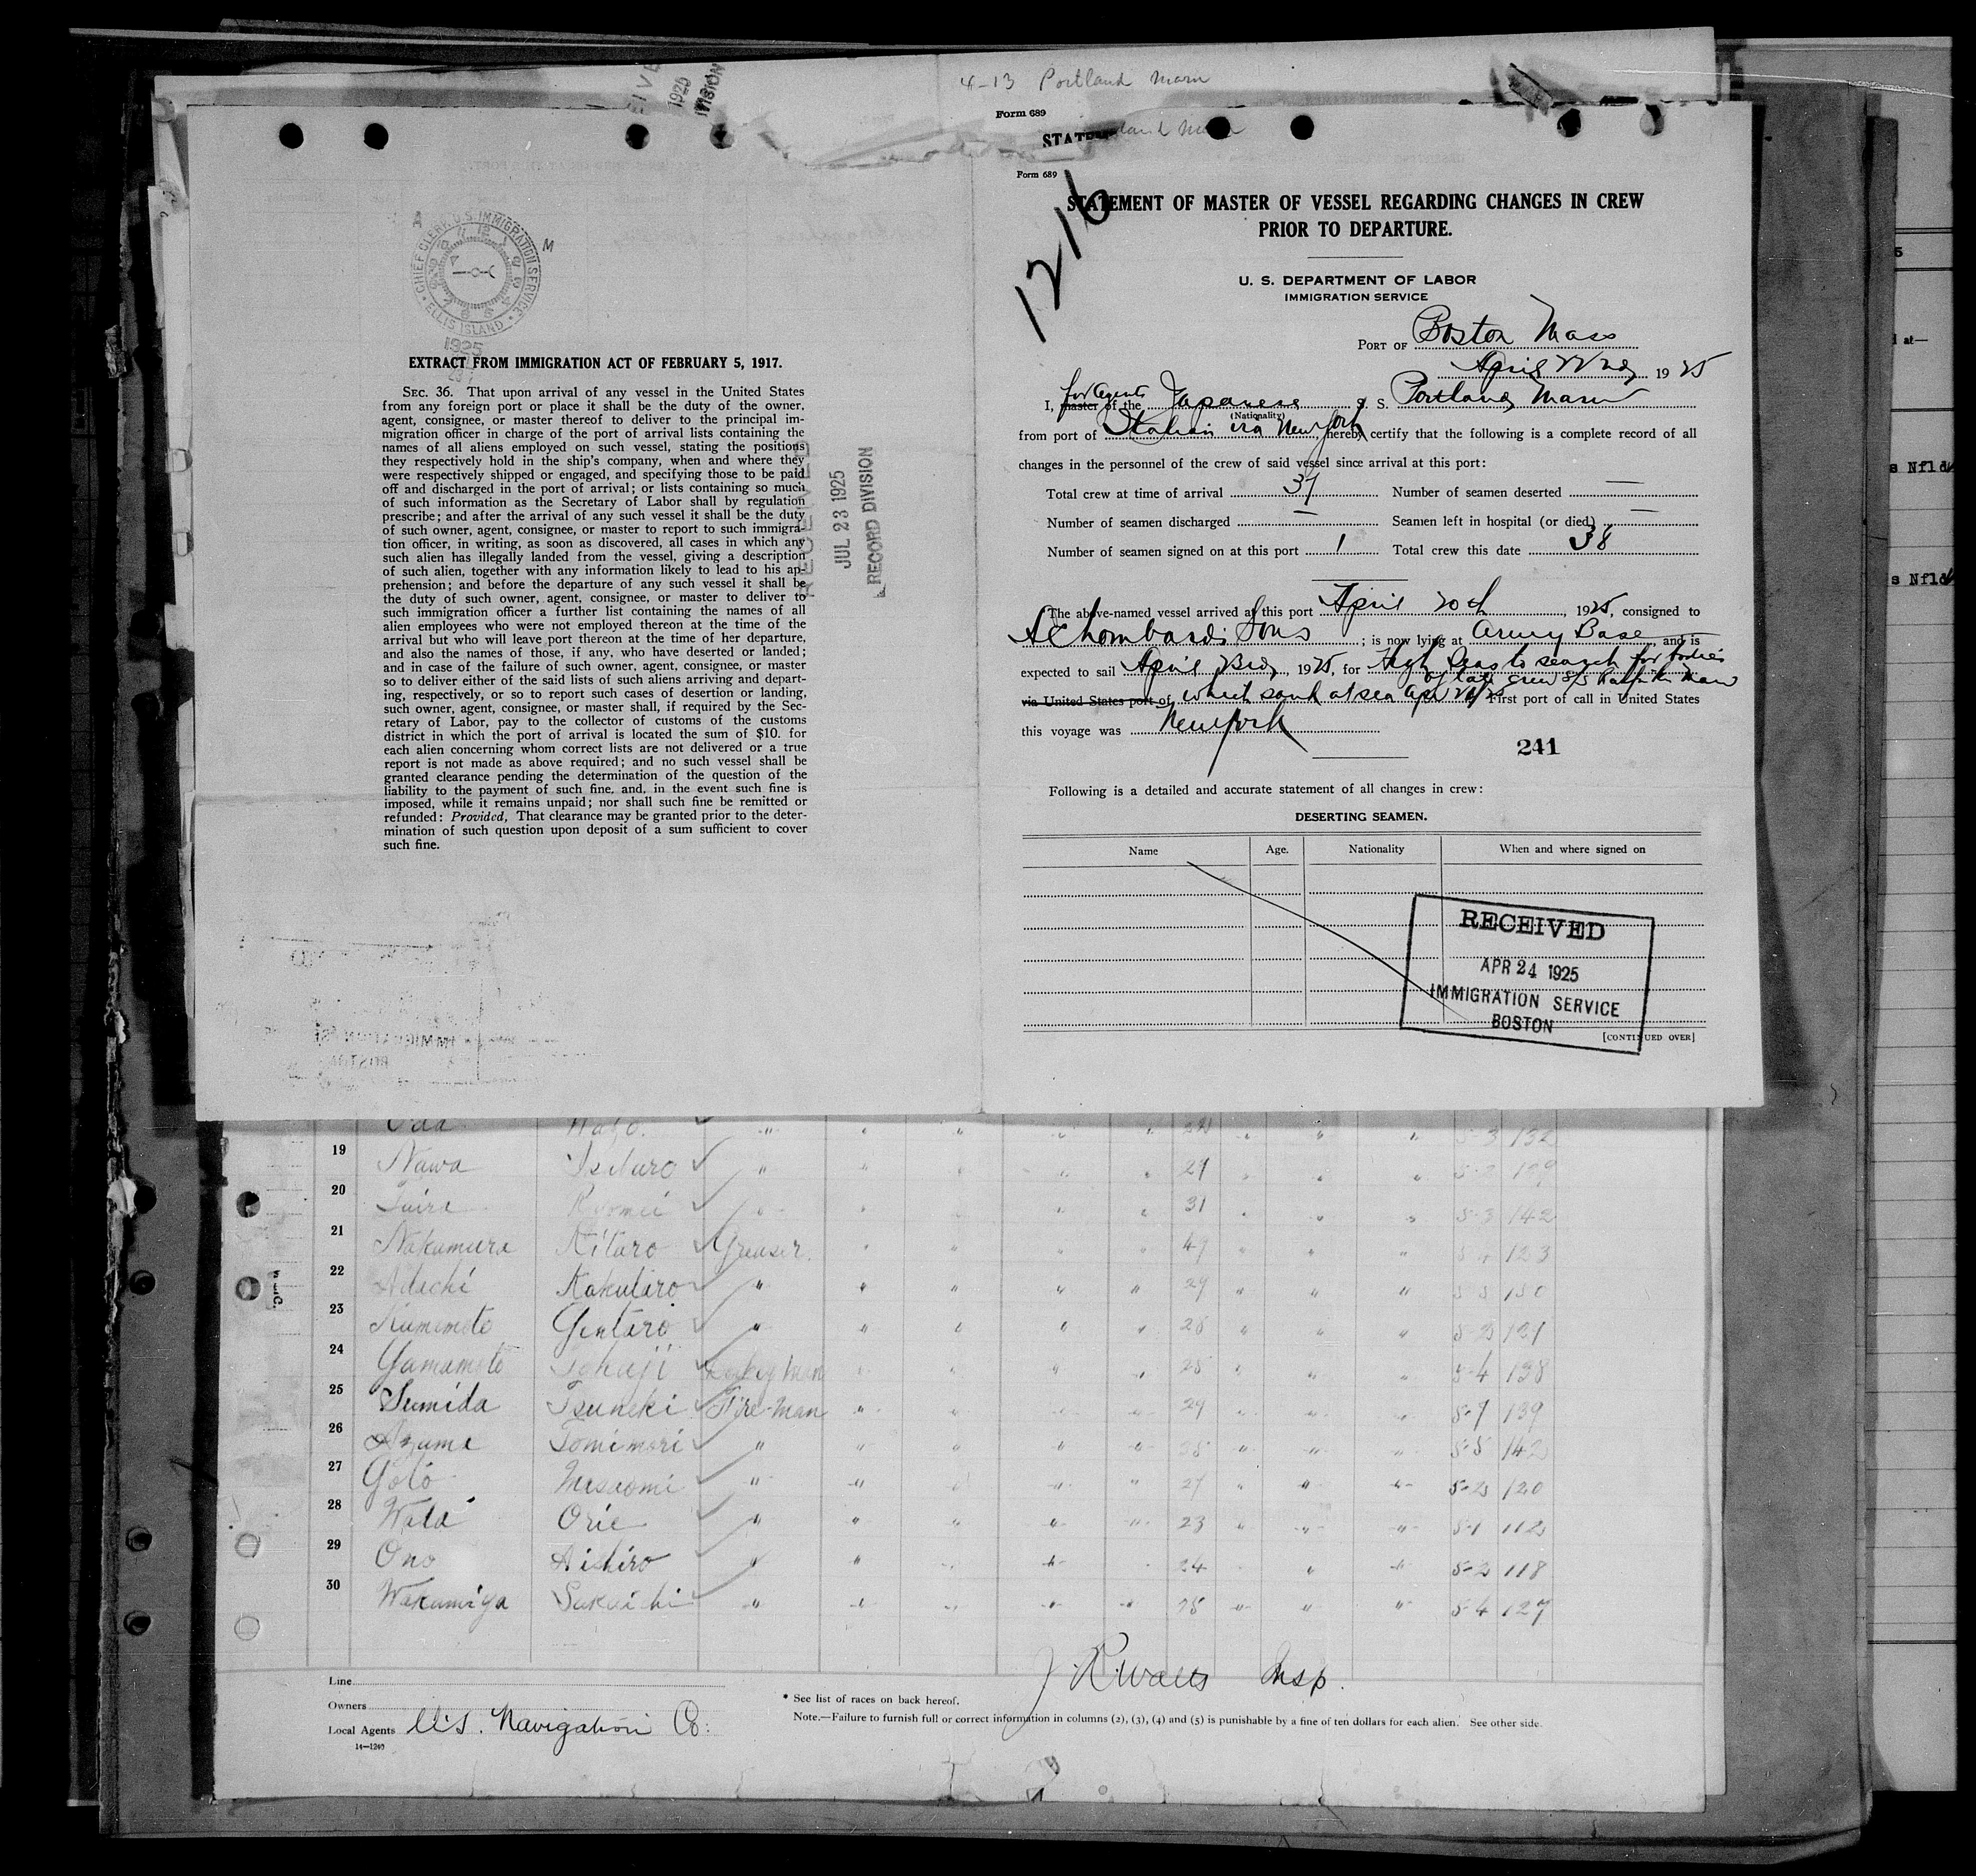 4-13 Portland Maru
Form 689
Form 689
1216
STATEMENT OF MASTER OF VESSEL REGARDING CHANGES IN CREW
PRIOR TO DEPARTURE.
U. S. DEPARTMENT OF LABOR
IMMIGRATION SERVICE
PORT OF Boston Mass
April 22nd, 1925
for Agents
I, master of the Japanese S. S. Portland Maru
(Nationality)
from port of Italian via New York hereby certify that the following is a complete record of all
changes in the personnel of the crew of said vessel since arrival at this port:
Total crew at time of arrival 37 Number of seamen deserted —
Number of seamen discharged — Seamen left in hospital (or died) —
Number of seamen signed on at this port 1 Total crew this date 38
The above-named vessel arrived at this port April 20th, 1925, consigned to
A C Lombards Sons; is now lying at Army Base, and is
expected to sail April 23rd, 1925, for High Seas to search for bodies
of late crew S/S Raifuku Maru
via United States port of which sank at sea Apr 21/25 First port of call in United States
this voyage was New York
241
Following is a detailed and accurate statement of all changes in crew:
DESERTING SEAMEN.
Name Age. Nationality When and where signed on
RECEIVED
APR 24 1925
IMMIGRATION SERVICE
BOSTON
[CONTINUED OVER]
CHIEF CLERK, U.S. IMMIGRATION SERVICE
ELLIS ISLAND
1925
EXTRACT FROM IMMIGRATION ACT OF FEBRUARY 5, 1917.
SEC. 36. That upon arrival of any vessel in the United States
from any foreign port or place it shall be the duty of the owner,
agent, consignee, or master thereof to deliver to the principal im-
migration officer in charge of the port of arrival lists containing the
names of all aliens employed on such vessel, stating the positions
they respectively hold in the ship's company, when and where they
were respectively shipped or engaged, and specifying those to be paid
off and discharged in the port of arrival; or lists containing so much
of such information as the Secretary of Labor shall by regulation
prescribe; and after the arrival of any such vessel it shall be the duty
of such owner, agent, consignee, or master to report to such immigra-
tion officer, in writing, as soon as discovered, all cases in which any
such alien has illegally landed from the vessel, giving a description
of such alien, together with any information likely to lead to his ap-
prehension; and before the departure of any such vessel it shall be
the duty of such owner, agent, consignee, or master to deliver to
such immigration officer a further list containing the names of all
alien employees who were not employed thereon at the time of the
arrival but who will leave port thereon at the time of her departure,
and also the names of those, if any, who have deserted or landed;
and in case of the failure of such owner, agent, consignee, or master
so to deliver either of the said lists of such aliens arriving and depart-
ing, respectively, or so to report such cases of desertion or landing,
such owner, agent, consignee, or master shall, if required by the Sec-
retary of Labor, pay to the collector of customs of the customs
district in which the port of arrival is located the sum of $10. for
each alien concerning whom correct lists are not delivered or a true
report is not made as above required; and no such vessel shall be
granted clearance pending the determination of the question of the
liability to the payment of such fine, and, in the event such fine is
imposed, while it remains unpaid; nor shall such fine be remitted or
refunded: Provided, That clearance may be granted prior to the deter-
mination of such question upon deposit of a sum sufficient to cover
such fine.
RECEIVED
JUL 23 1925
RECORD DIVISION
19 Nawa 27 129
20 31 5-3 142
21 Nakamura Kitaro Greaser 47 5-4 123
22 Adachi Kakutaro " 29 130
23 Kumemoto Gentaro " 28 121
24 Yamamoto Tokuji Donkey Man 28 5-4 138
25 Sumida Tsuneki Fire-man 29 139
26 Azuma Tomimori " 5-5 142
27 Goto Masaomi " 27 5-2 120
28 Wada Orie " 23 5-1 112
29 Ono Aishiro " 24 5-2 118
30 Wakamiya Sakuichi " 5-4 127
J. R. Walls Insp.
Line
Owners
Local Agents U.S. Navigation Co.
14—1240
* See list of races on back hereof.
Note.—Failure to furnish full or correct information in columns (2), (3), (4) and (5) is punishable by a fine of ten dollars for each alien. See other side.
s Nfld
s Nfld